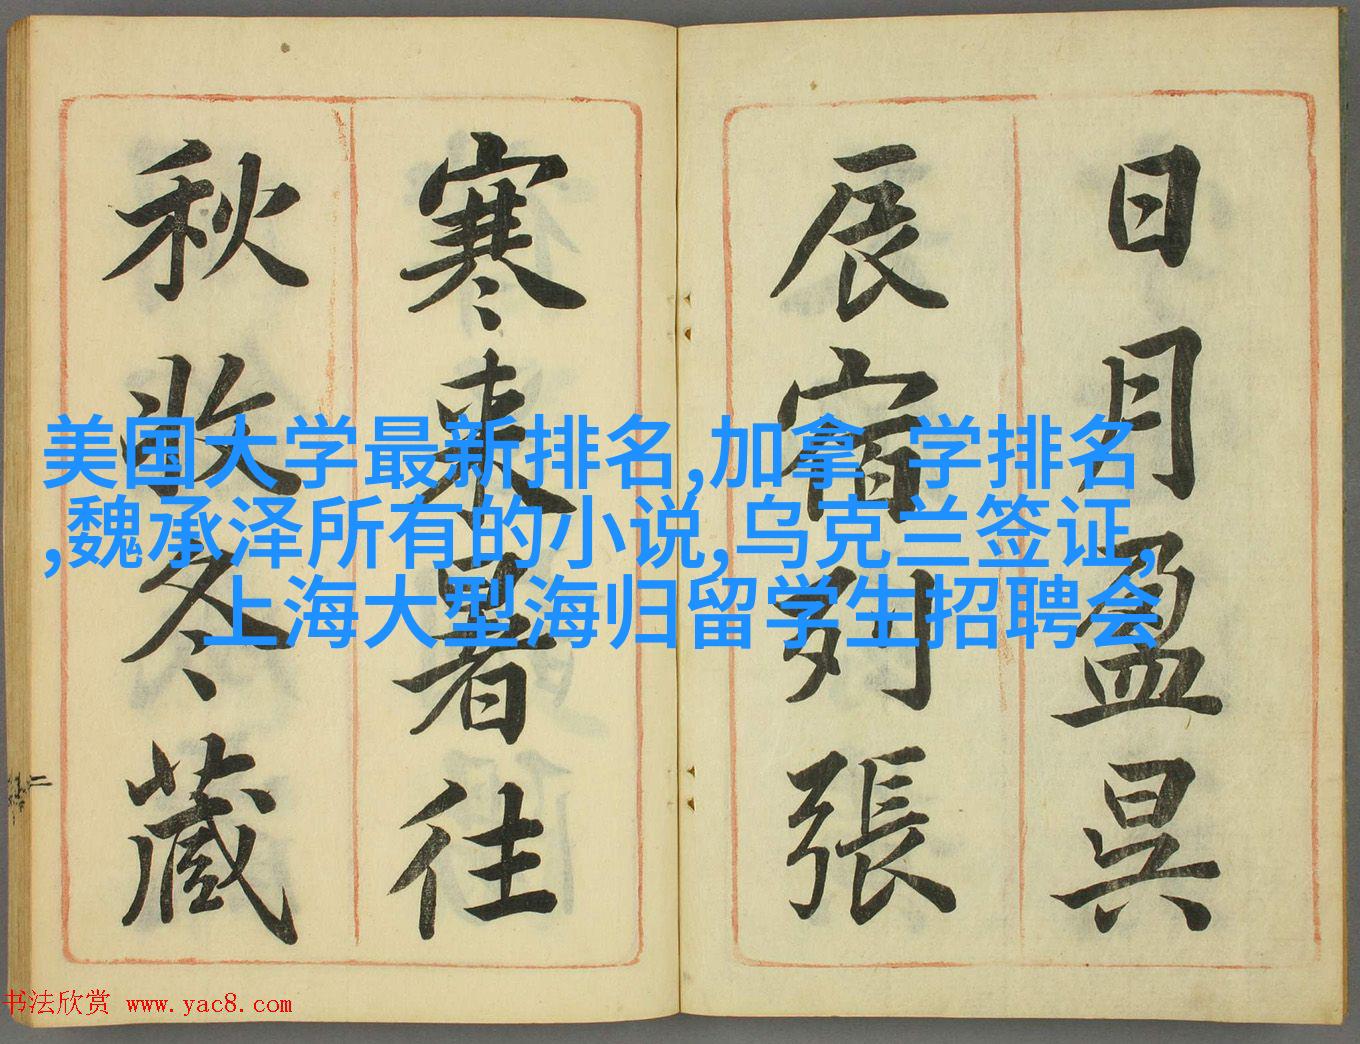 日月盈昃
辰宿列張
寒來暑往
秋收冬藏
美国大学最新排名,加拿 学排名
,魏承泽所有的小说,乌克兰签证,
上海大型海归留学生招聘会
书法欣赏 www.yac8.com